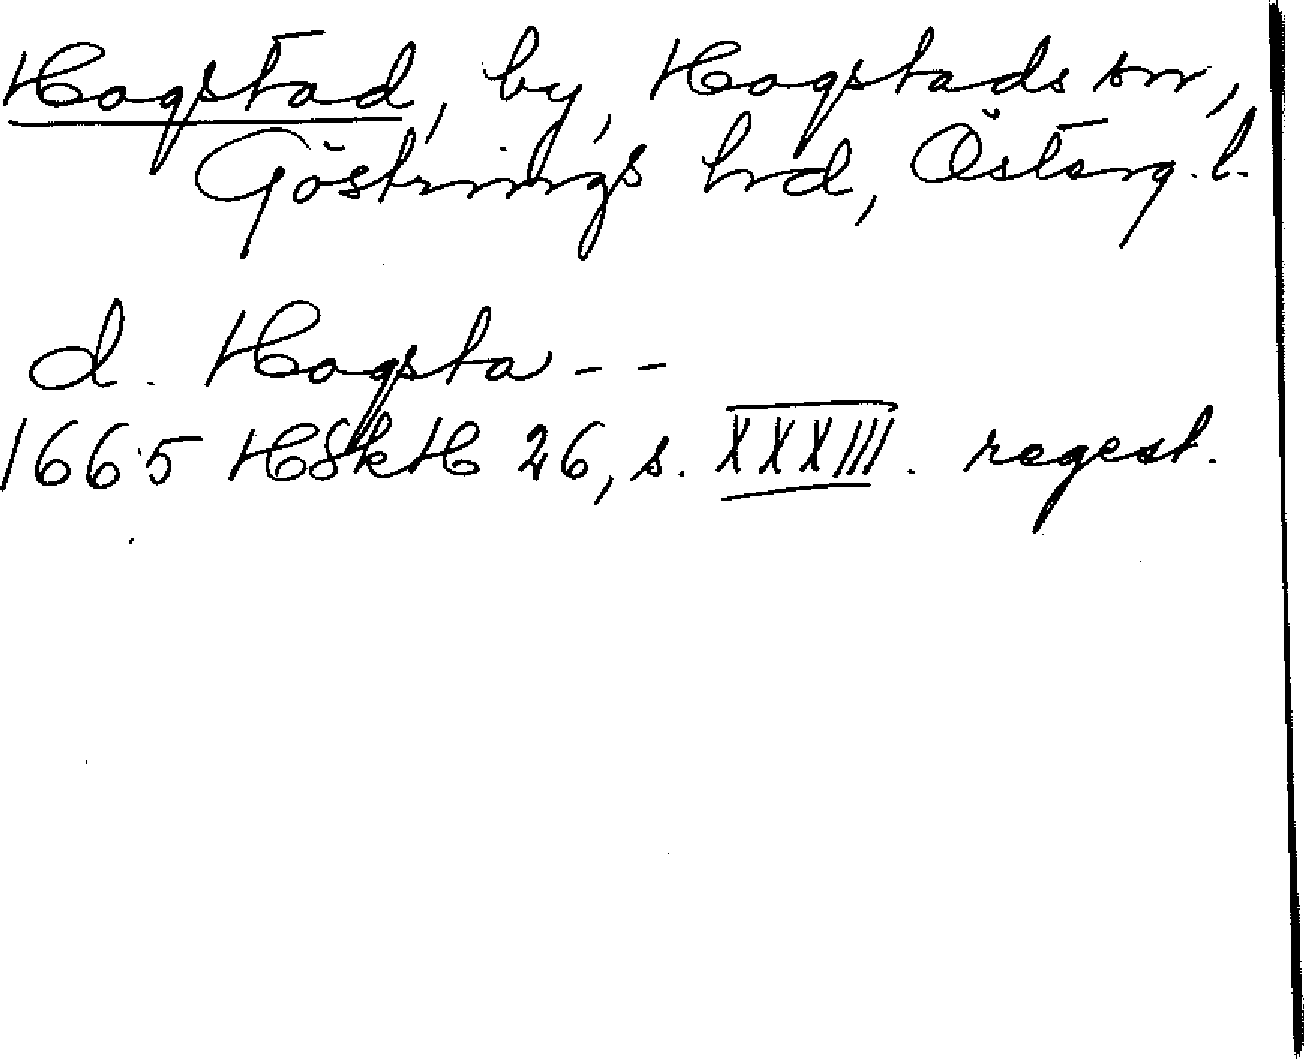 Hogstad, by, Hogstads sn,
Göstrings hrd, Österg. l.
d. Hogsta - -
1665 HSkH 26, s. XXXIII. regest.